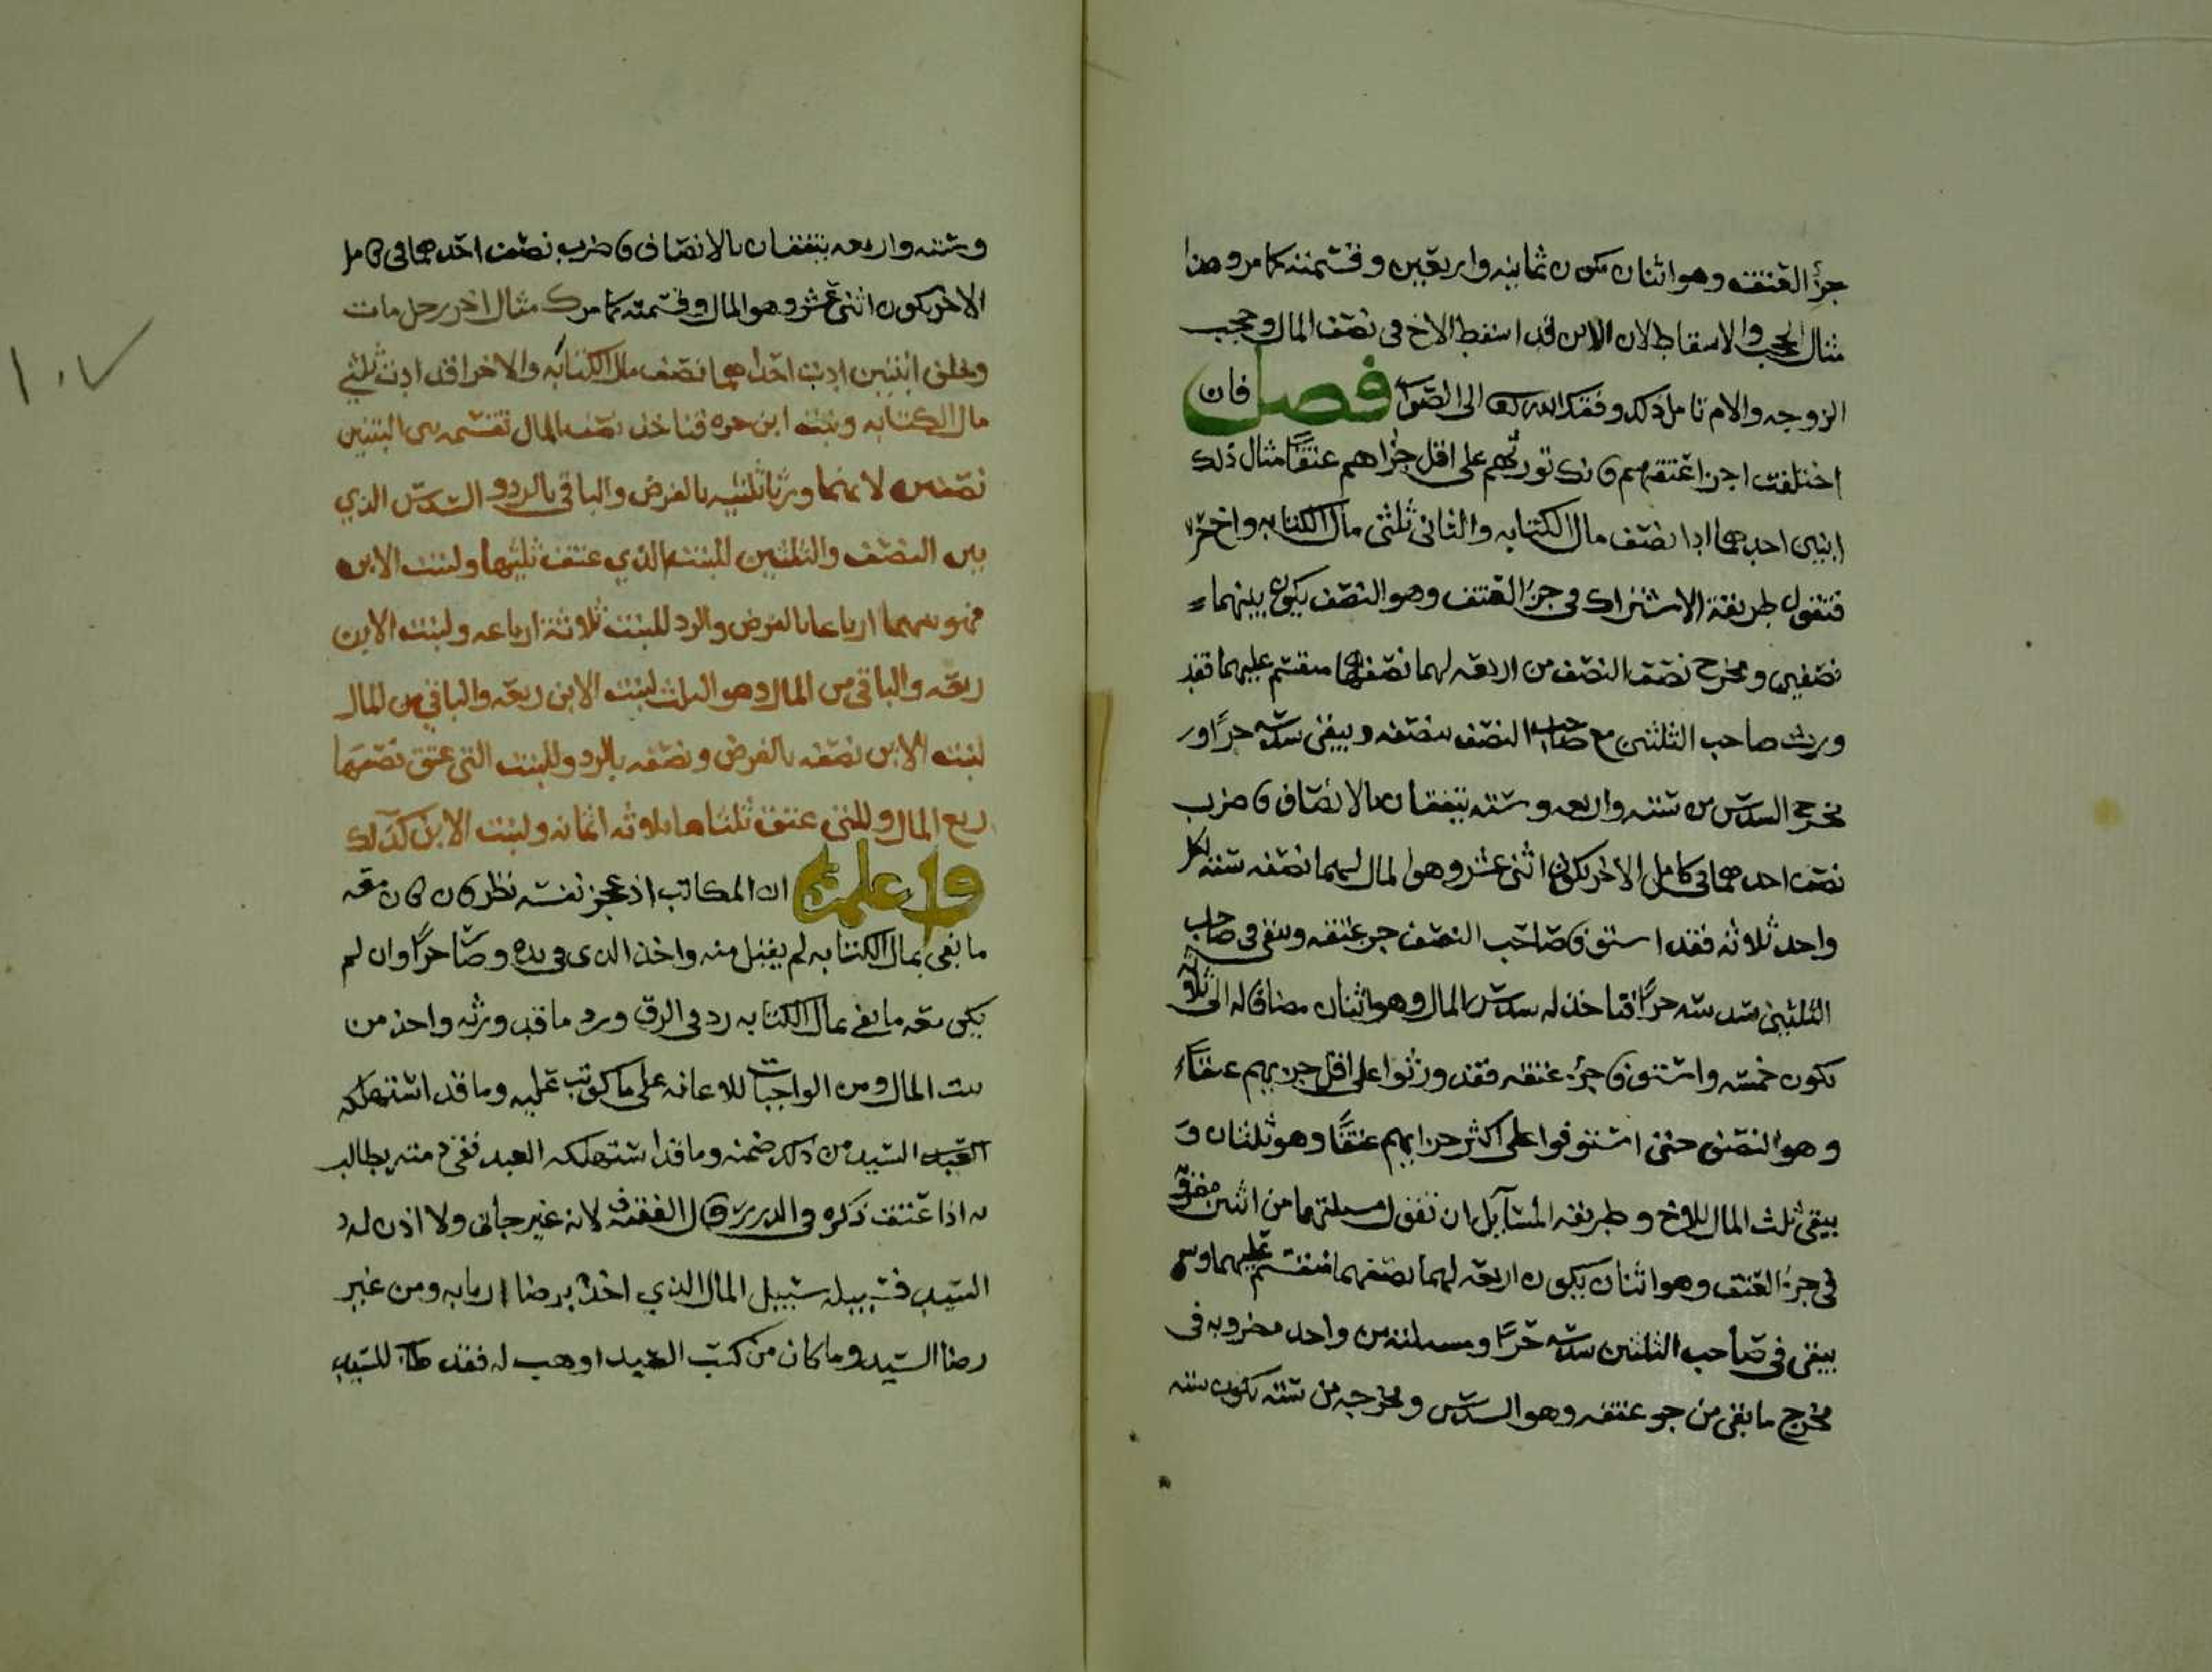 جزؤ العتقه وهو اثنان يكون ثمانيه واربعين وقسمته كما مر وهذا
مثال الحجب والاسقاط لان الابن قد اسقط الاخ في نصف المال وحجب
الزوجه والام تامل ذلك وفقك الله تعالى الى الصواب فصل فان
اختلفت اجزا عتقهم فانك تورثهم على اقل جزاهم عتقًا مثال ذلك
ابنين احدهما ادا نصف مال الكتابه والثاني ثلثي مال الكتابه واخ حرًا
فتقول طريقة الاشتراك في جزؤ العتق وهو النصف يكون بينهما
نصفين ومخرج نصف النصف من اربعه لهما نصفها منقسم عليهما فقد
ورث صاحب الثلثين مع صاحب النصف بنصفه ويبقى سدسه حرًا و
مخرج السدس من سته واربعه وسته يتفقان بالانصاف فاضرب
نصف احدهما في كامل الاخر يكون اثني عشر وهو المال لهما نصفه سته لكل
واحد ثلاثه فقد استوفا صاحب النصف جزؤ عتقه وبقي في صاحب
الثلثين سدسه حرًا فتاخذ له سدس المال وهو اثنان مضافا له الى ثلاثه
يكون خمسه واستوفا جزؤ عتقه فقد ورثوا على اقل جزيهم عتقًا
وهو النصف حتى استوفوا على اكثر جزايهم عتقًا وهو ثلثان و
يبقى ثلث المال للاخ وطريقه المسآيل ان تقول مسلتهما من اثنين مضروبه
في جزؤ العتق وهو اثنان يكون اربعه لهما نصفهما منقسم عليهما و
يبقى في صاحب الثلثين سدسه حرًا ومسلته من واحد مضروبه في
مخرج ما بقي من جزؤ عتقه وهو السدس ومخرجه من سته يكون سته
وسته واربعه يتفقان بالانصاف فاضرب نصف احدهما في كامل
الاخر يكون اثنى عشر وهو المال وقسمته كما مر مثال اخر رجل مات
وخلف ابنتين ادت احداهما نصف مال الكتابه والاخرا قد ادت ثلثي
مال الكتابه وبنت ابن حره فتاخذ نصف المال تقسمه بين البنتين
نصفين لانهما ورثا ثلثيه بالفرض والباقي بالرد و السدس الذي
بين النصف والثلثين للبنت الذي عتق ثلثيها ولبنت الابن
فهو بينهما ارباعا بالفرض والرد للبنت ثلاثة ارباعه ولبنت الابن
ربعه والباقي من المال وهو الثلث لبنت الابن ربعه والباقي من المال
لبنت الابن نصفه بالفرض ونصفه بالرد وللبنت التي عتق نصفها
ربع المال وللتي عتق ثلثاها ثلاثه اثمانه ولبنت الابن كذلك
واعلم ان المكاتب اذ عجز نفسه نظر فان كان معه
ما يفي بمال الكتابه لم يقبل منه واخذ الذي في يده وصار حرًا وان لم
يكن معه ما يفي بمال الكتابه رد في الرق ورد ما قد ورثه واخذ من
بيت المال ومن الواجبات للاعانه على ما كوتب عليه وما قد استهلكه
السيد من ذلك ضمنه وما قد استهلكه العبد ففي ذمته يطالب
به اذا عتق ذكره في الدرر قال الفقيه لانه غير جاني ولا اذن له
السيد فسبيله سبيل المال الذي اخذ برضا اربابه ومن غير
رضا السيد وما كان من كسب العبد او وهب له فقد طاب للسيد
١٠٧